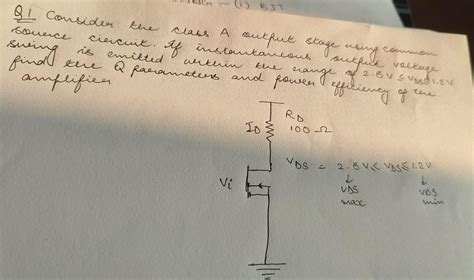 (1) BJT
Q1 Consider the class A output stage using common
source circuit. If instantaneous output voltage
swing is emitted within the range of 2.5V ≤ VDS ≤ 1.2V
find the Q parameters and power efficiency of the
amplifier
RD
ID 100 Ω
VDS = 2.5V ≤ VDS ≤ 1.2V
Vi
↓ ↓
VDS VDS
max min